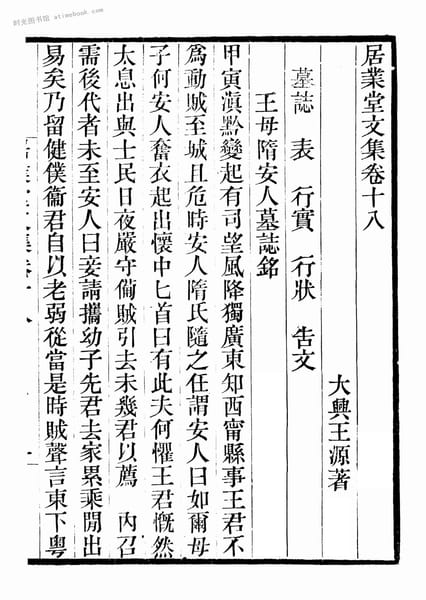 时光图书馆 atimebook.com
居業堂文集卷十八
大興王源著
墓誌 表 行實 行狀 告文
王母隋安人墓誌銘
甲寅滇黔變起有司望風降獨廣東知西甯縣事王君不
爲動賊至城且危時安人隋氏隨之任謂安人曰如爾母
子何安人奮衣起出懷中匕首曰有此夫何懼王君慨然
太息出與士民日夜嚴守備賊引去未幾君以薦 內召
需後代者未至安人曰妾請攜幼子先君去家累乘閒出
易矣乃留健僕衞君自以老弱從當是時賊聲言東下粵